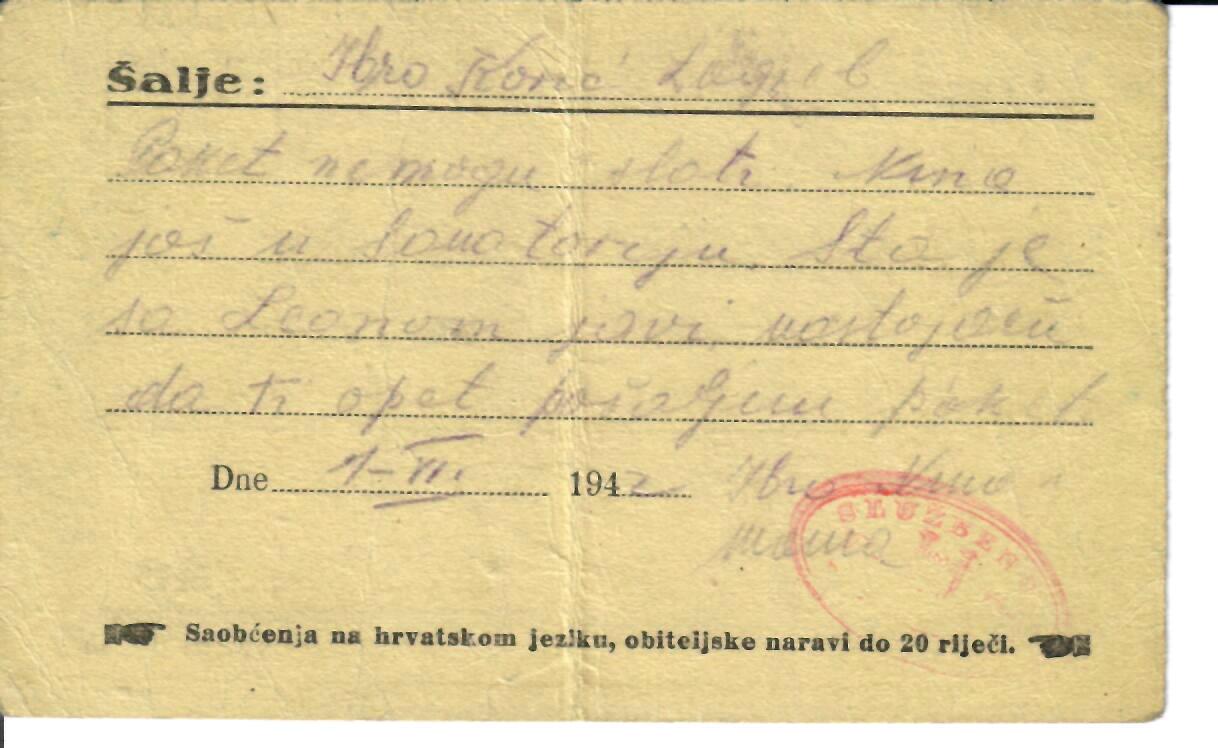 Šalje: Ibro
Paket ne mogu slati. Nina
još u Sanatoriju. Šta je
sa Leonom javi, nastojaću
da ti opet pošaljem paket
Dne 1-VII. 1942 Ibro Nina
mama
SLUŽBENO
Saobćenja na hrvatskom jeziku, obiteljske naravi do 20 riječi.